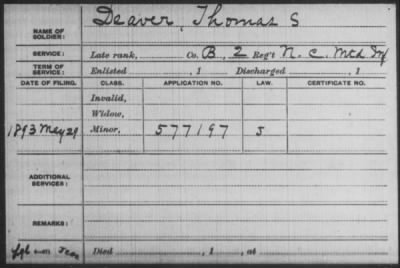 NAME OF SOLDIER: Deaver, Thomas S
SERVICE: Late rank, Co. B, 2 Reg't N. C. Mtd Inf
TERM OF SERVICE: Enlisted , 1 Discharged , 1
DATE OF FILING. CLASS. APPLICATION NO. LAW. CERTIFICATE NO.
Invalid,
Widow,
1893 May 29 Minor, 577197 S
ADDITIONAL SERVICES:
REMARKS:
Died , 1 , at